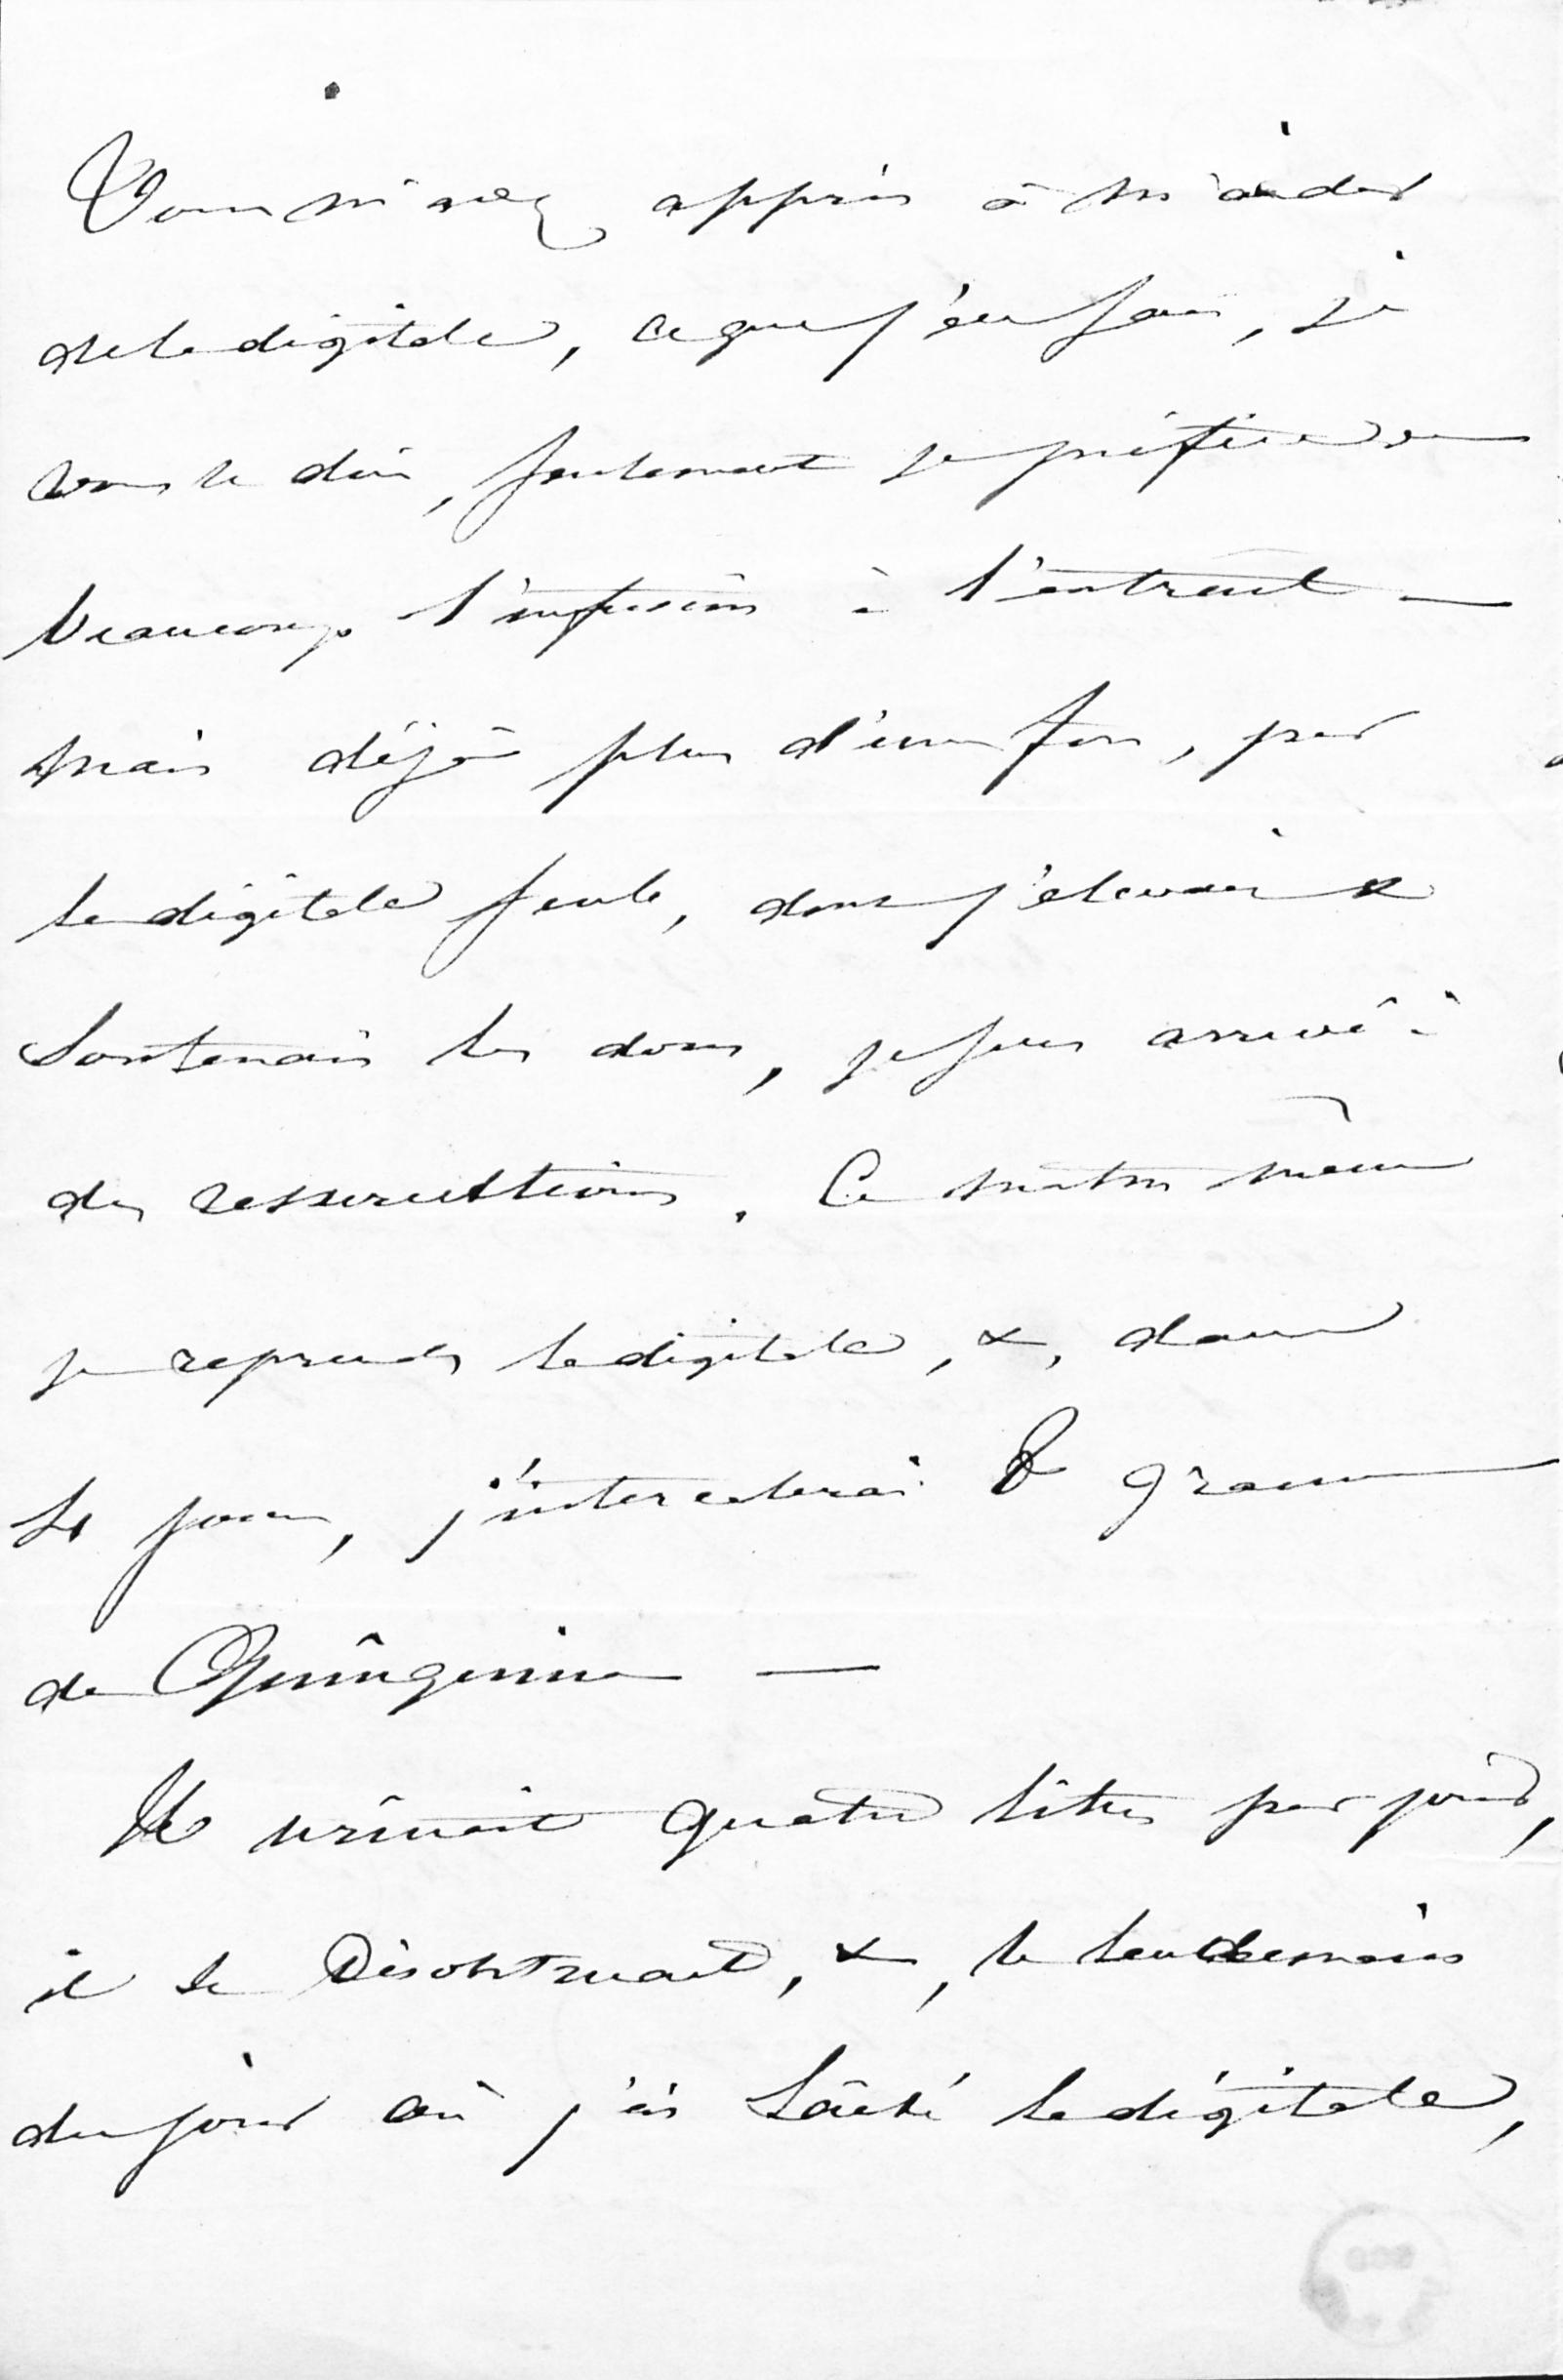 Vous m'avez appris à m'aider
de la digitale, ce que j'en sais, je
vous le dois, seulement je préfère
beaucoup l'infusion à l'extrait —
mais déjà plus d'une fois, par
la digitale seule, dont j'élevais &
soutenais les doses, je suis arrivé à
des resserrections. Ce matin même
je reprends la digitale, &, dans
le jour, j'intercalerai 8 grammes
de
Il urinait quatre litres par jour,
il se désobstruait, &, le lendemain
du jour où j'ai lâché la digitale,